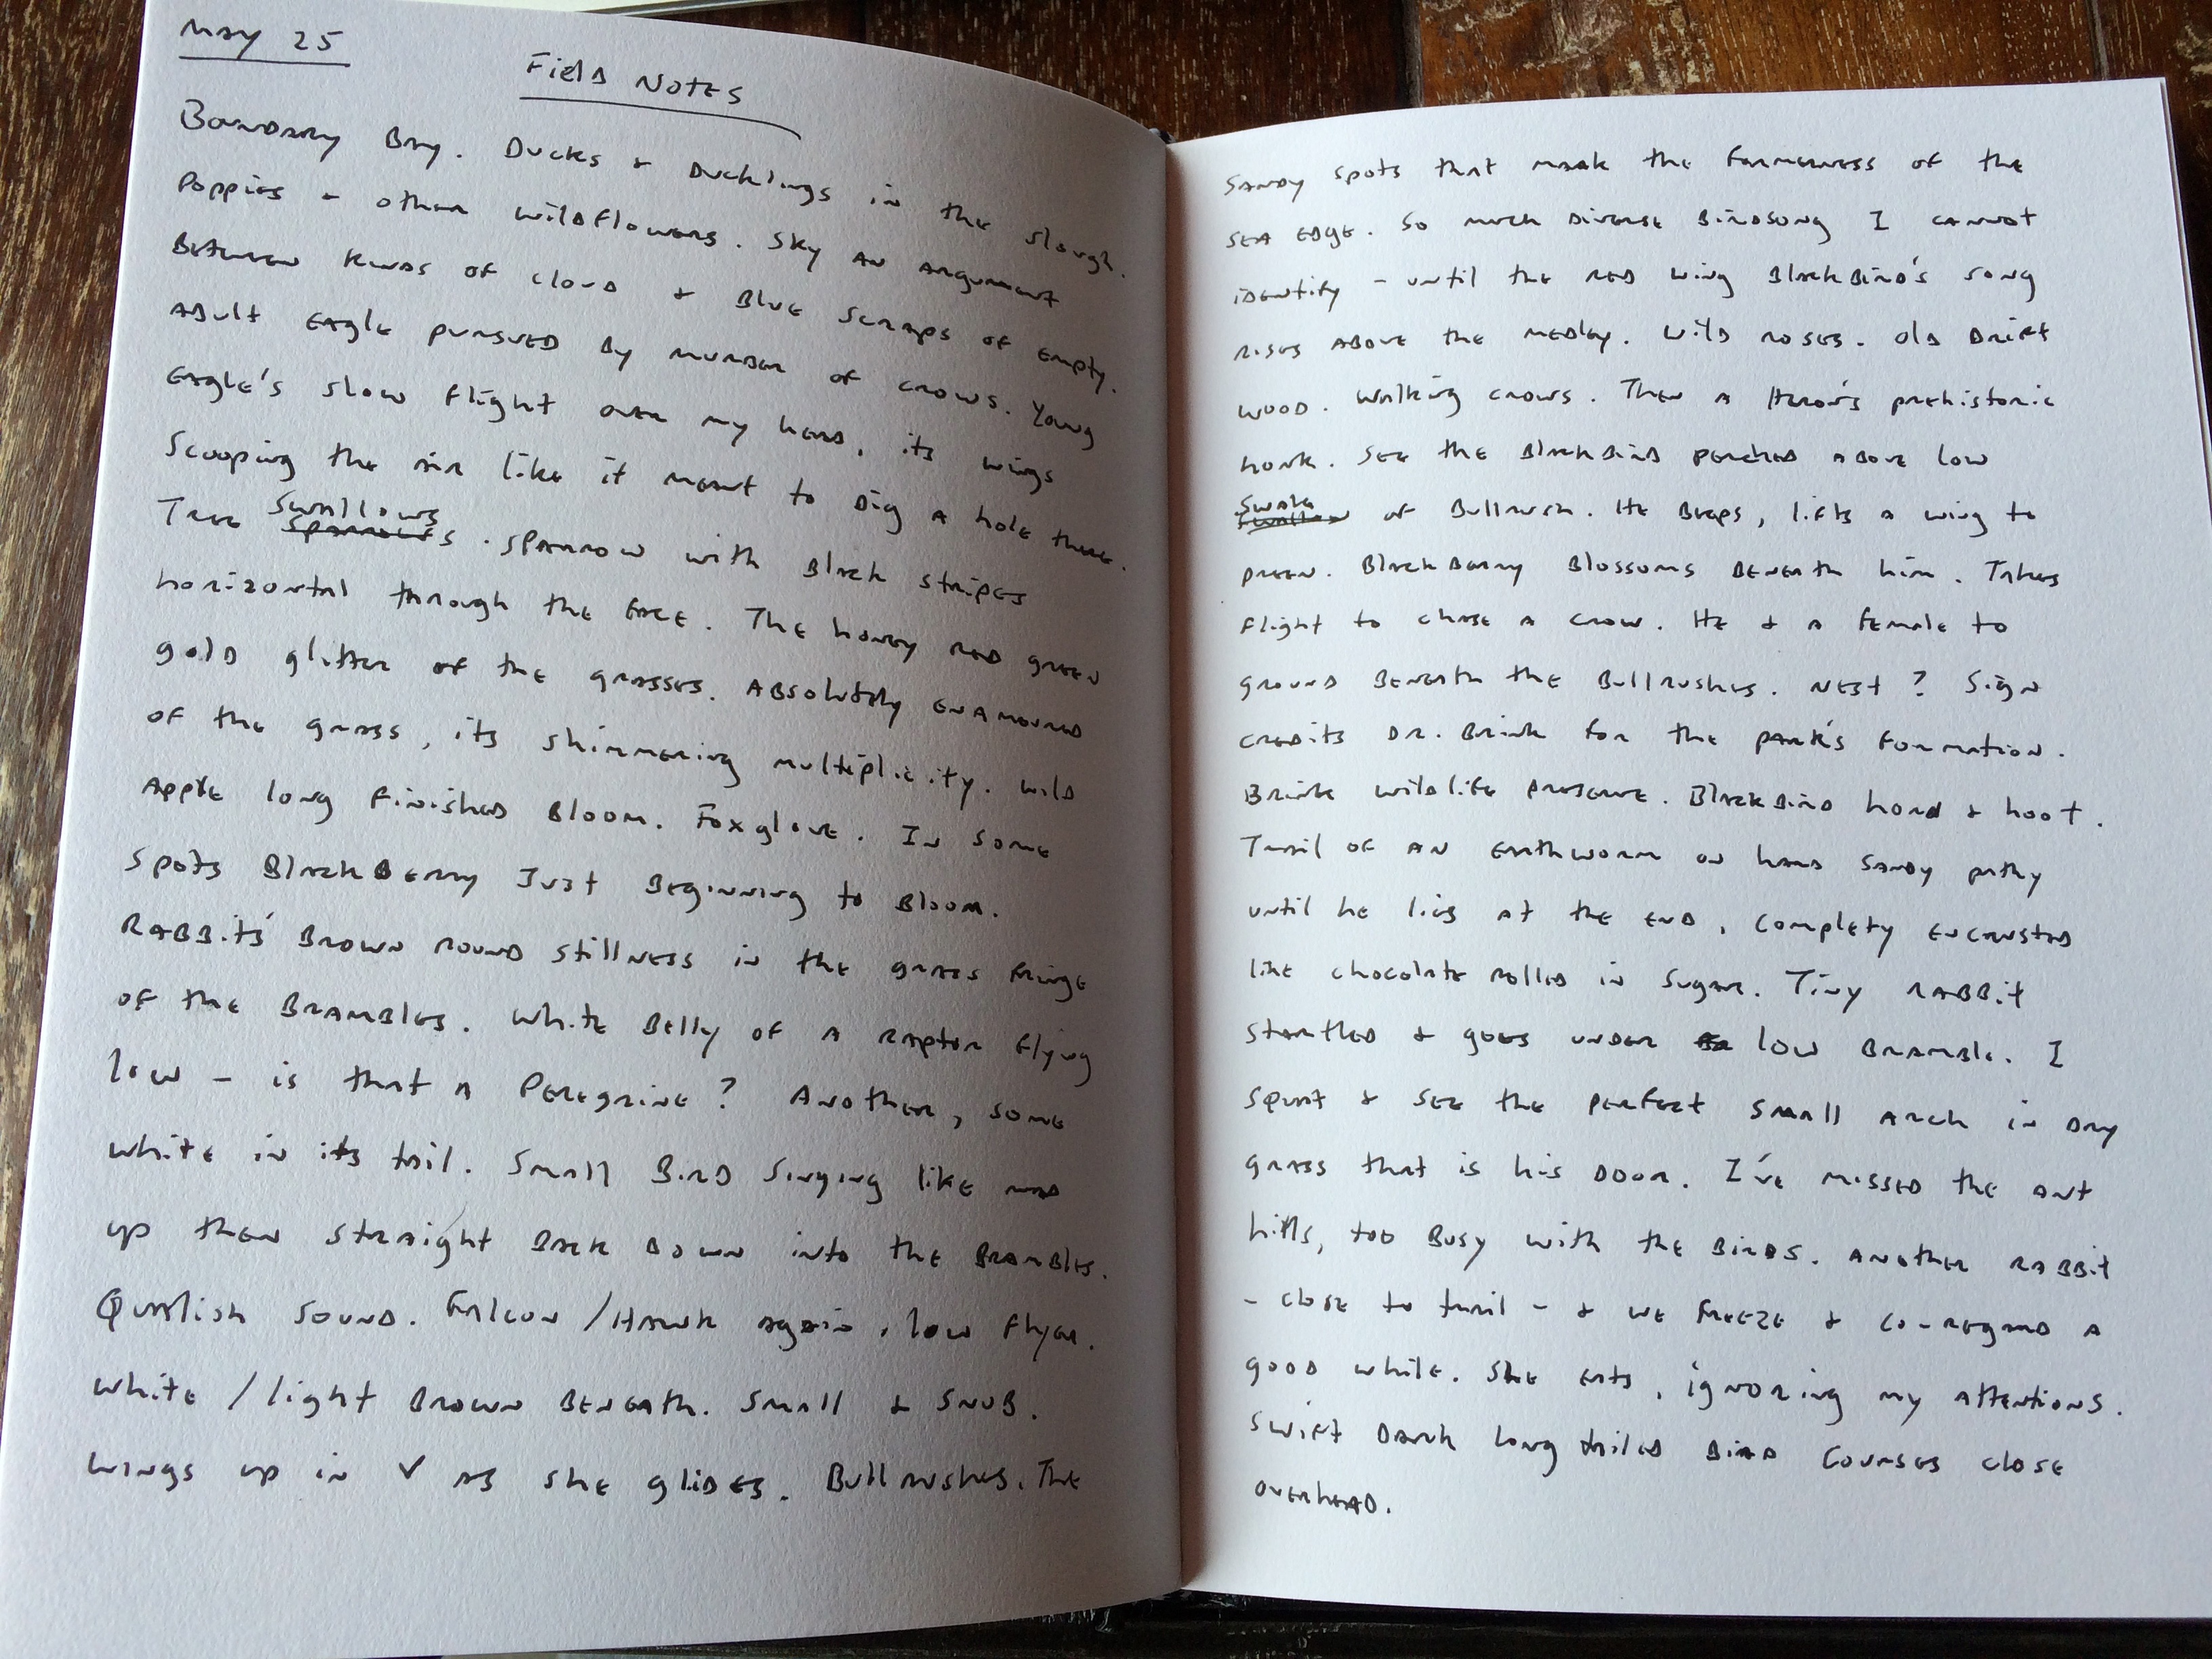 May 25
Field Notes
Boundary Bay. Ducks & Ducklings in the slough.
Poppies & other wildflowers. Sky an argument
Between kinds of cloud & Blue scraps of empty.
Adult Eagle pursued by murder of crows. Young
Eagle's slow flight over my head, its wings
Scooping the air like it meant to dig a hole there.
Tree Swallows. Sparrow with Black stripes
horizontal through the face. The honey red green
gold glitter of the grasses. Absolutely enamoured
of the grass, its shimmering multiplicity. Wild
Apple long finished Bloom. Foxglove. In some
Spots BlackBerry Just Beginning to Bloom.
Rabbits' Brown round stillness in the grass fringe
of the Brambles. White Belly of a raptor flying
low - is that a Peregrine? Another, some
white in its tail. Small Bird Singing like mad
up then straight Back down into the Brambles.
Quailish sound. Falcon / Hawk again, low flyer.
White / light Brown Beneath. Small & Snub.
Wings up in V as she glides. Bullrushes. The
Sandy spots that mark the formerness of the
Sea edge. So much diverse Birdsong I cannot
identify - until the red wing BlackBird's song
rises above the medley. Wild roses. Old Drift
wood. Walking crows. Then a Heron's prehistoric
honk. See the BlackBird perched above low
Swale of Bullrush. He Beeps, lifts a wing to
preen. BlackBerry Blossoms Beneath him. Takes
flight to chase a crow. He & a female to
ground Beneath the Bullrushes. Nest? Sign
credits Dr. Brink for the park's formation.
Brink wildlife preserve. BlackBird honk & hoot.
Trail of an earthworm on hard sandy pathy
until he lies at the end, complety encrusted
like chocolate rolled in sugar. Tiny rabbit
startled & goes under low Bramble. I
squat & see the perfect small arch in dry
grass that is his Door. I've missed the ant
hills, too Busy with the Birds. Another rabbit
- close to trail - & we freeze & co-regard a
good while. She eats, ignoring my attentions.
Swift Dark long tailed Bird courses close
overhead.